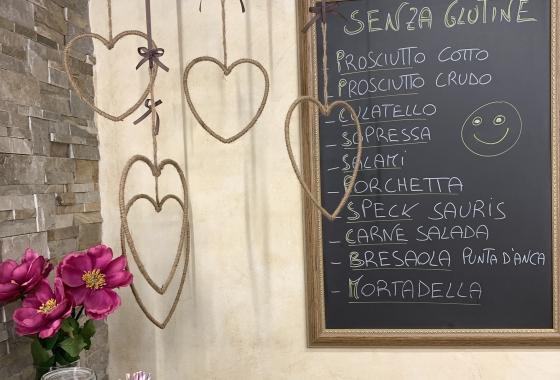 SENZA GLUTINE
PROSCIUTTO COTTO
- PROSCIUTTO CRUDO
- CULATELLO
- SOPRESSA
- SALAMI
- PORCHETTA
- SPECK SAURIS
- CARNE SALADA
- BRESAOLA PUNTA D'ANCA
- MORTADELLA